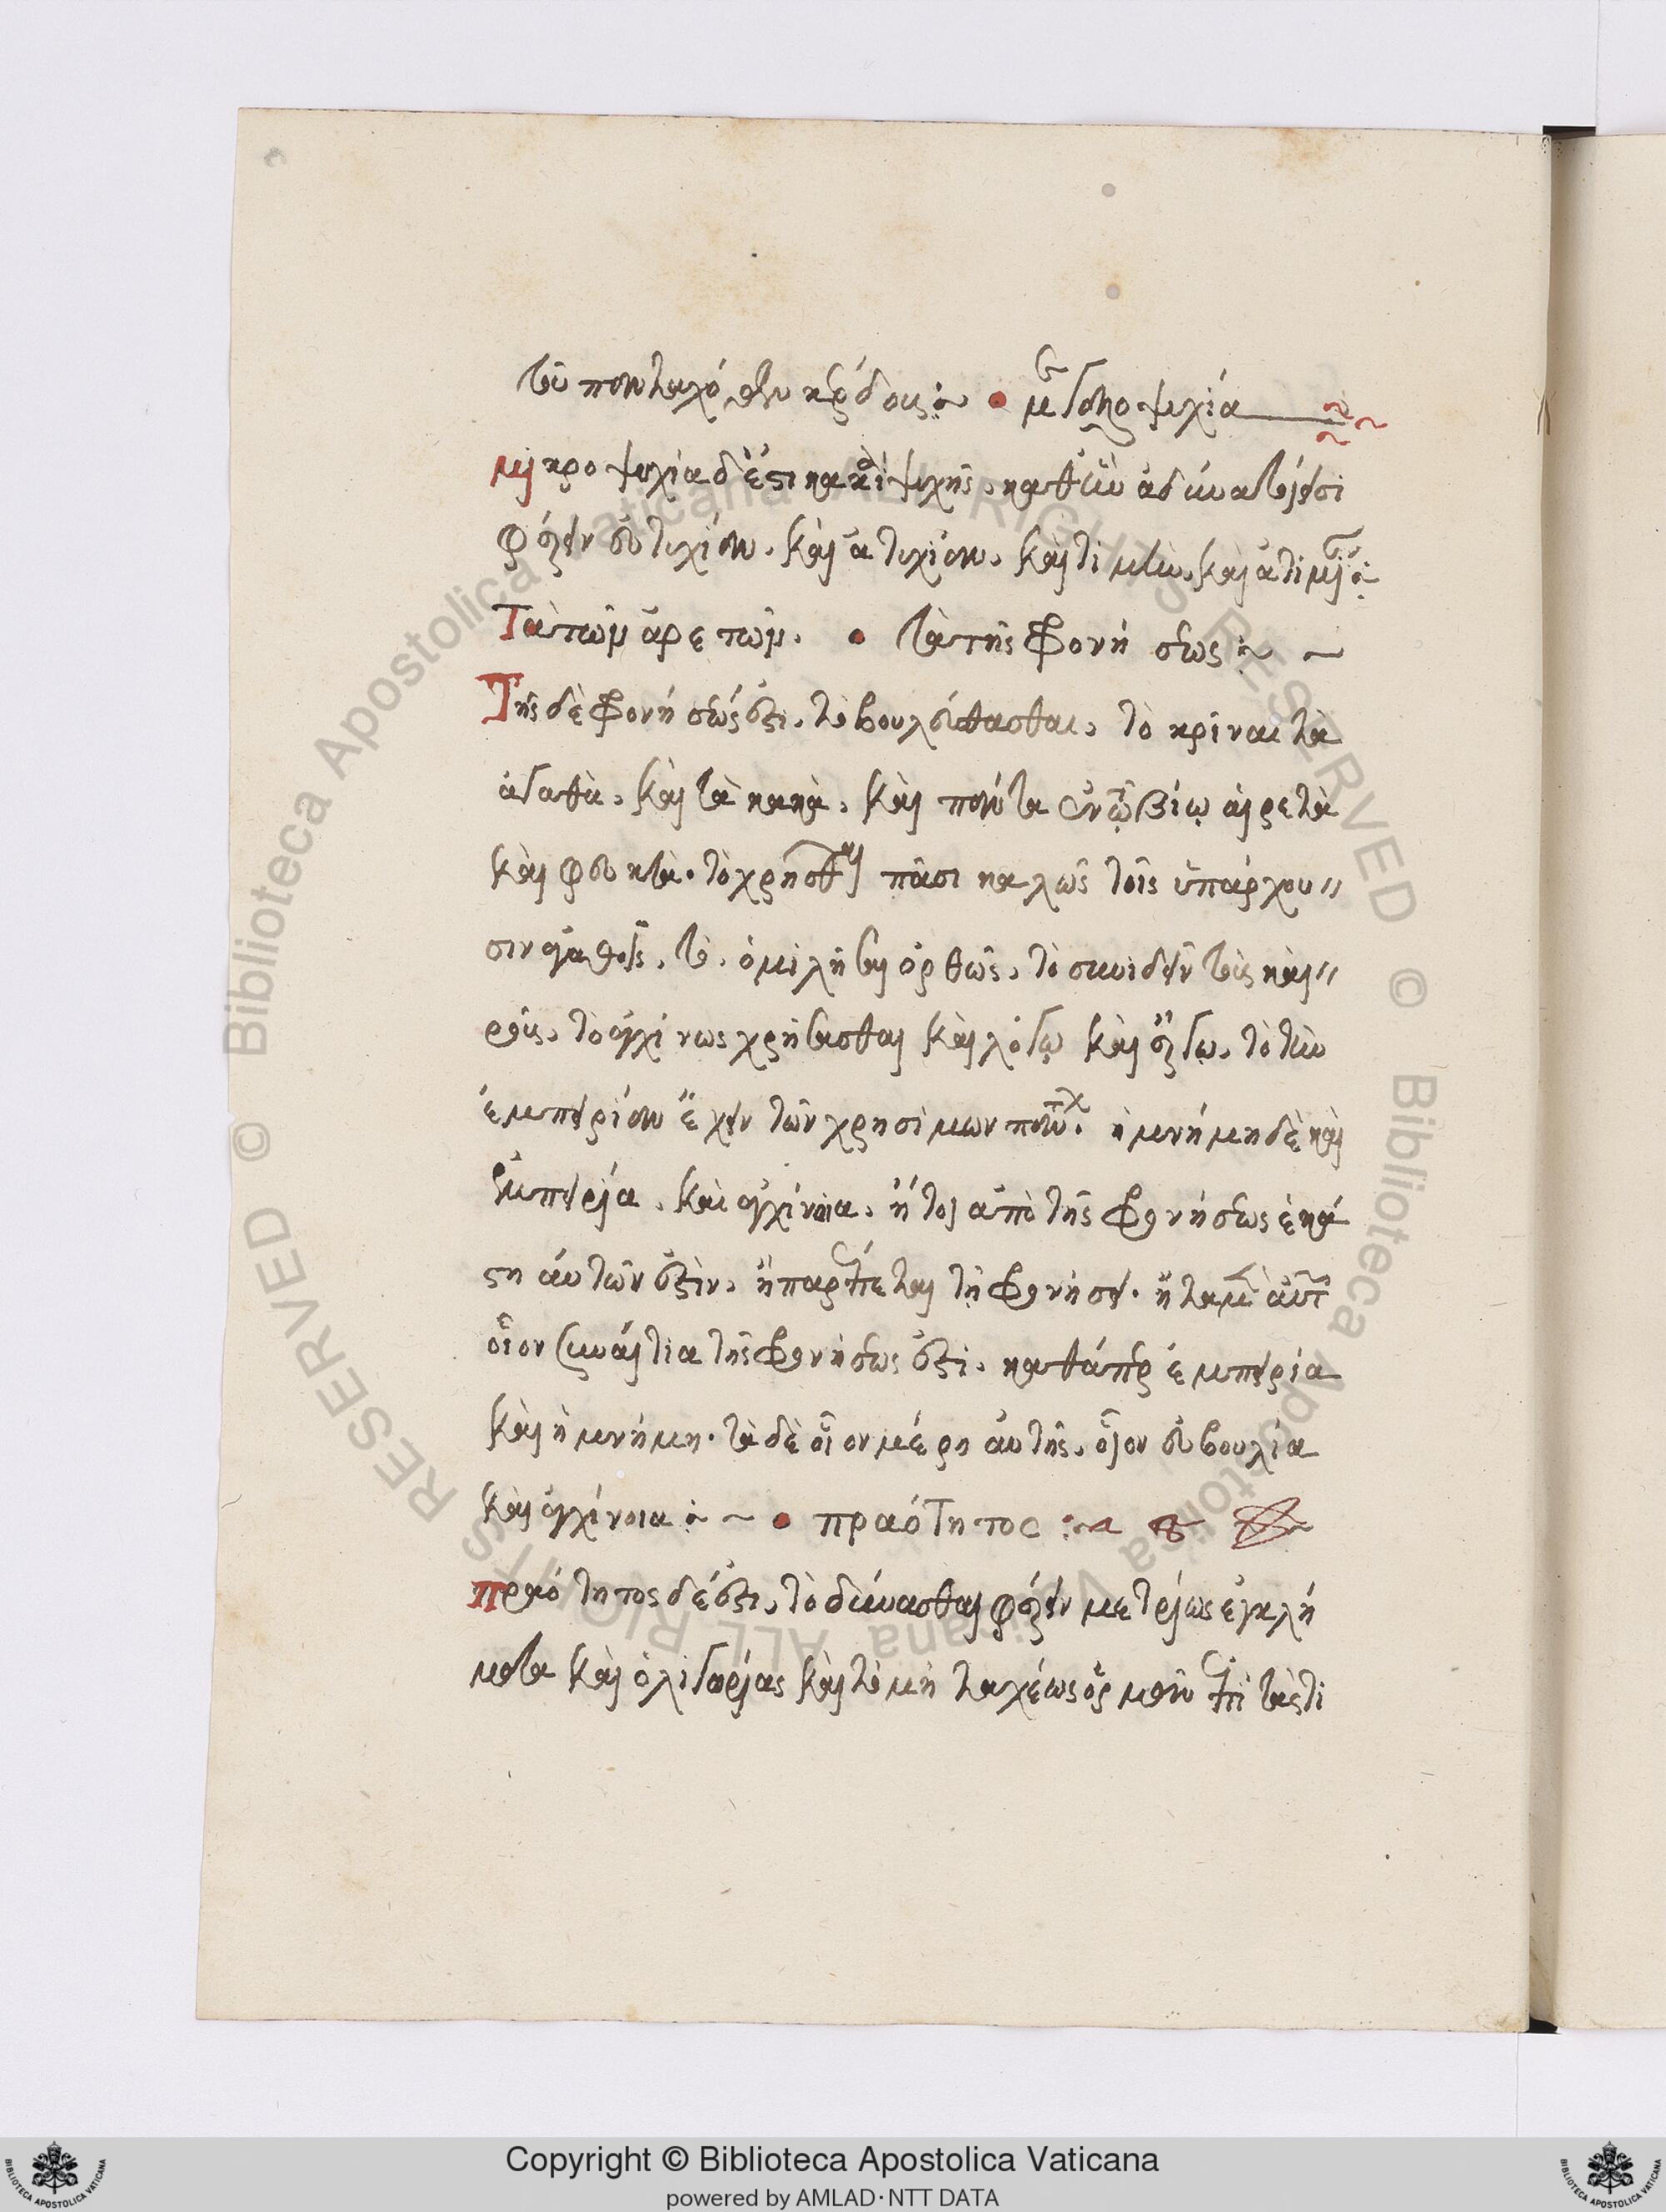 τοῦ πανταχόθεν κέρδους :~ • μεγαλοψυχία
μικροψυχία δ' ἔστι κακία ψυχῆς, καθ' ἣν ἀδυνατοῦσι
φέρειν εὐτυχίαν, καὶ ἀτυχίαν, καὶ τιμὴν, καὶ ἀτιμίαν :
Τὰ τῶν ἀρετῶν. • τὰ τῆς φρονήσεως :~ ~
Τῆς δὲ φρονήσεώς ἐστι, τὸ βουλεύσασθαι, τὸ κρῖναι τὰ
ἀγαθὰ, καὶ τὰ κακὰ, καὶ πάντα ἐν τῷ βίῳ αἱρετὰ
καὶ φευκτὰ. τὸ χρῆσθαι πᾶσι καλῶς τοῖς ὑπάρχου〃
σιν ἀγαθοῖς, τὸ ὁμιλῆσαι ὀρθῶς, τὸ συνιδεῖν τοὺς και〃
ροὺς, τὸ ἀγχίνως χρήσασθαι καὶ λόγῳ καὶ ἔργῳ, τὸ τὴν
ἐμπειρίαν ἔχειν τῶν χρησίμων πάντων. ἡ μνήμη δὲ καὶ
ἐμπειρία, καὶ ἀγχίνοια, ἤτοι ἀπὸ τῆς φρονήσεως ἑκά
στη αὐτῶν ἐστὶν, ἢ παρέπεται τῇ φρονήσει. ἢ τὰ μὲν αὐτῶν
οἷον συναίτια τῆς φρονήσεως ἐστι, καθάπερ ἐμπειρία
καὶ ἡ μνήμη. τὰ δὲ οἷον μέρη αὐτῆς, οἷον εὐβουλία
καὶ ἀγχίνοια :~ • πραότητος :~
πραότητος δέ ἐστι, τὸ δύνασθαι φέρειν μετρίως ἐγκλή
ματα καὶ ὀλιγωρίας καὶ τὸ μὴ ταχέως ὁρμᾶν ἐπὶ τὰς τι
Copyright © Biblioteca Apostolica Vaticana
powered by AMLAD·NTT DATA